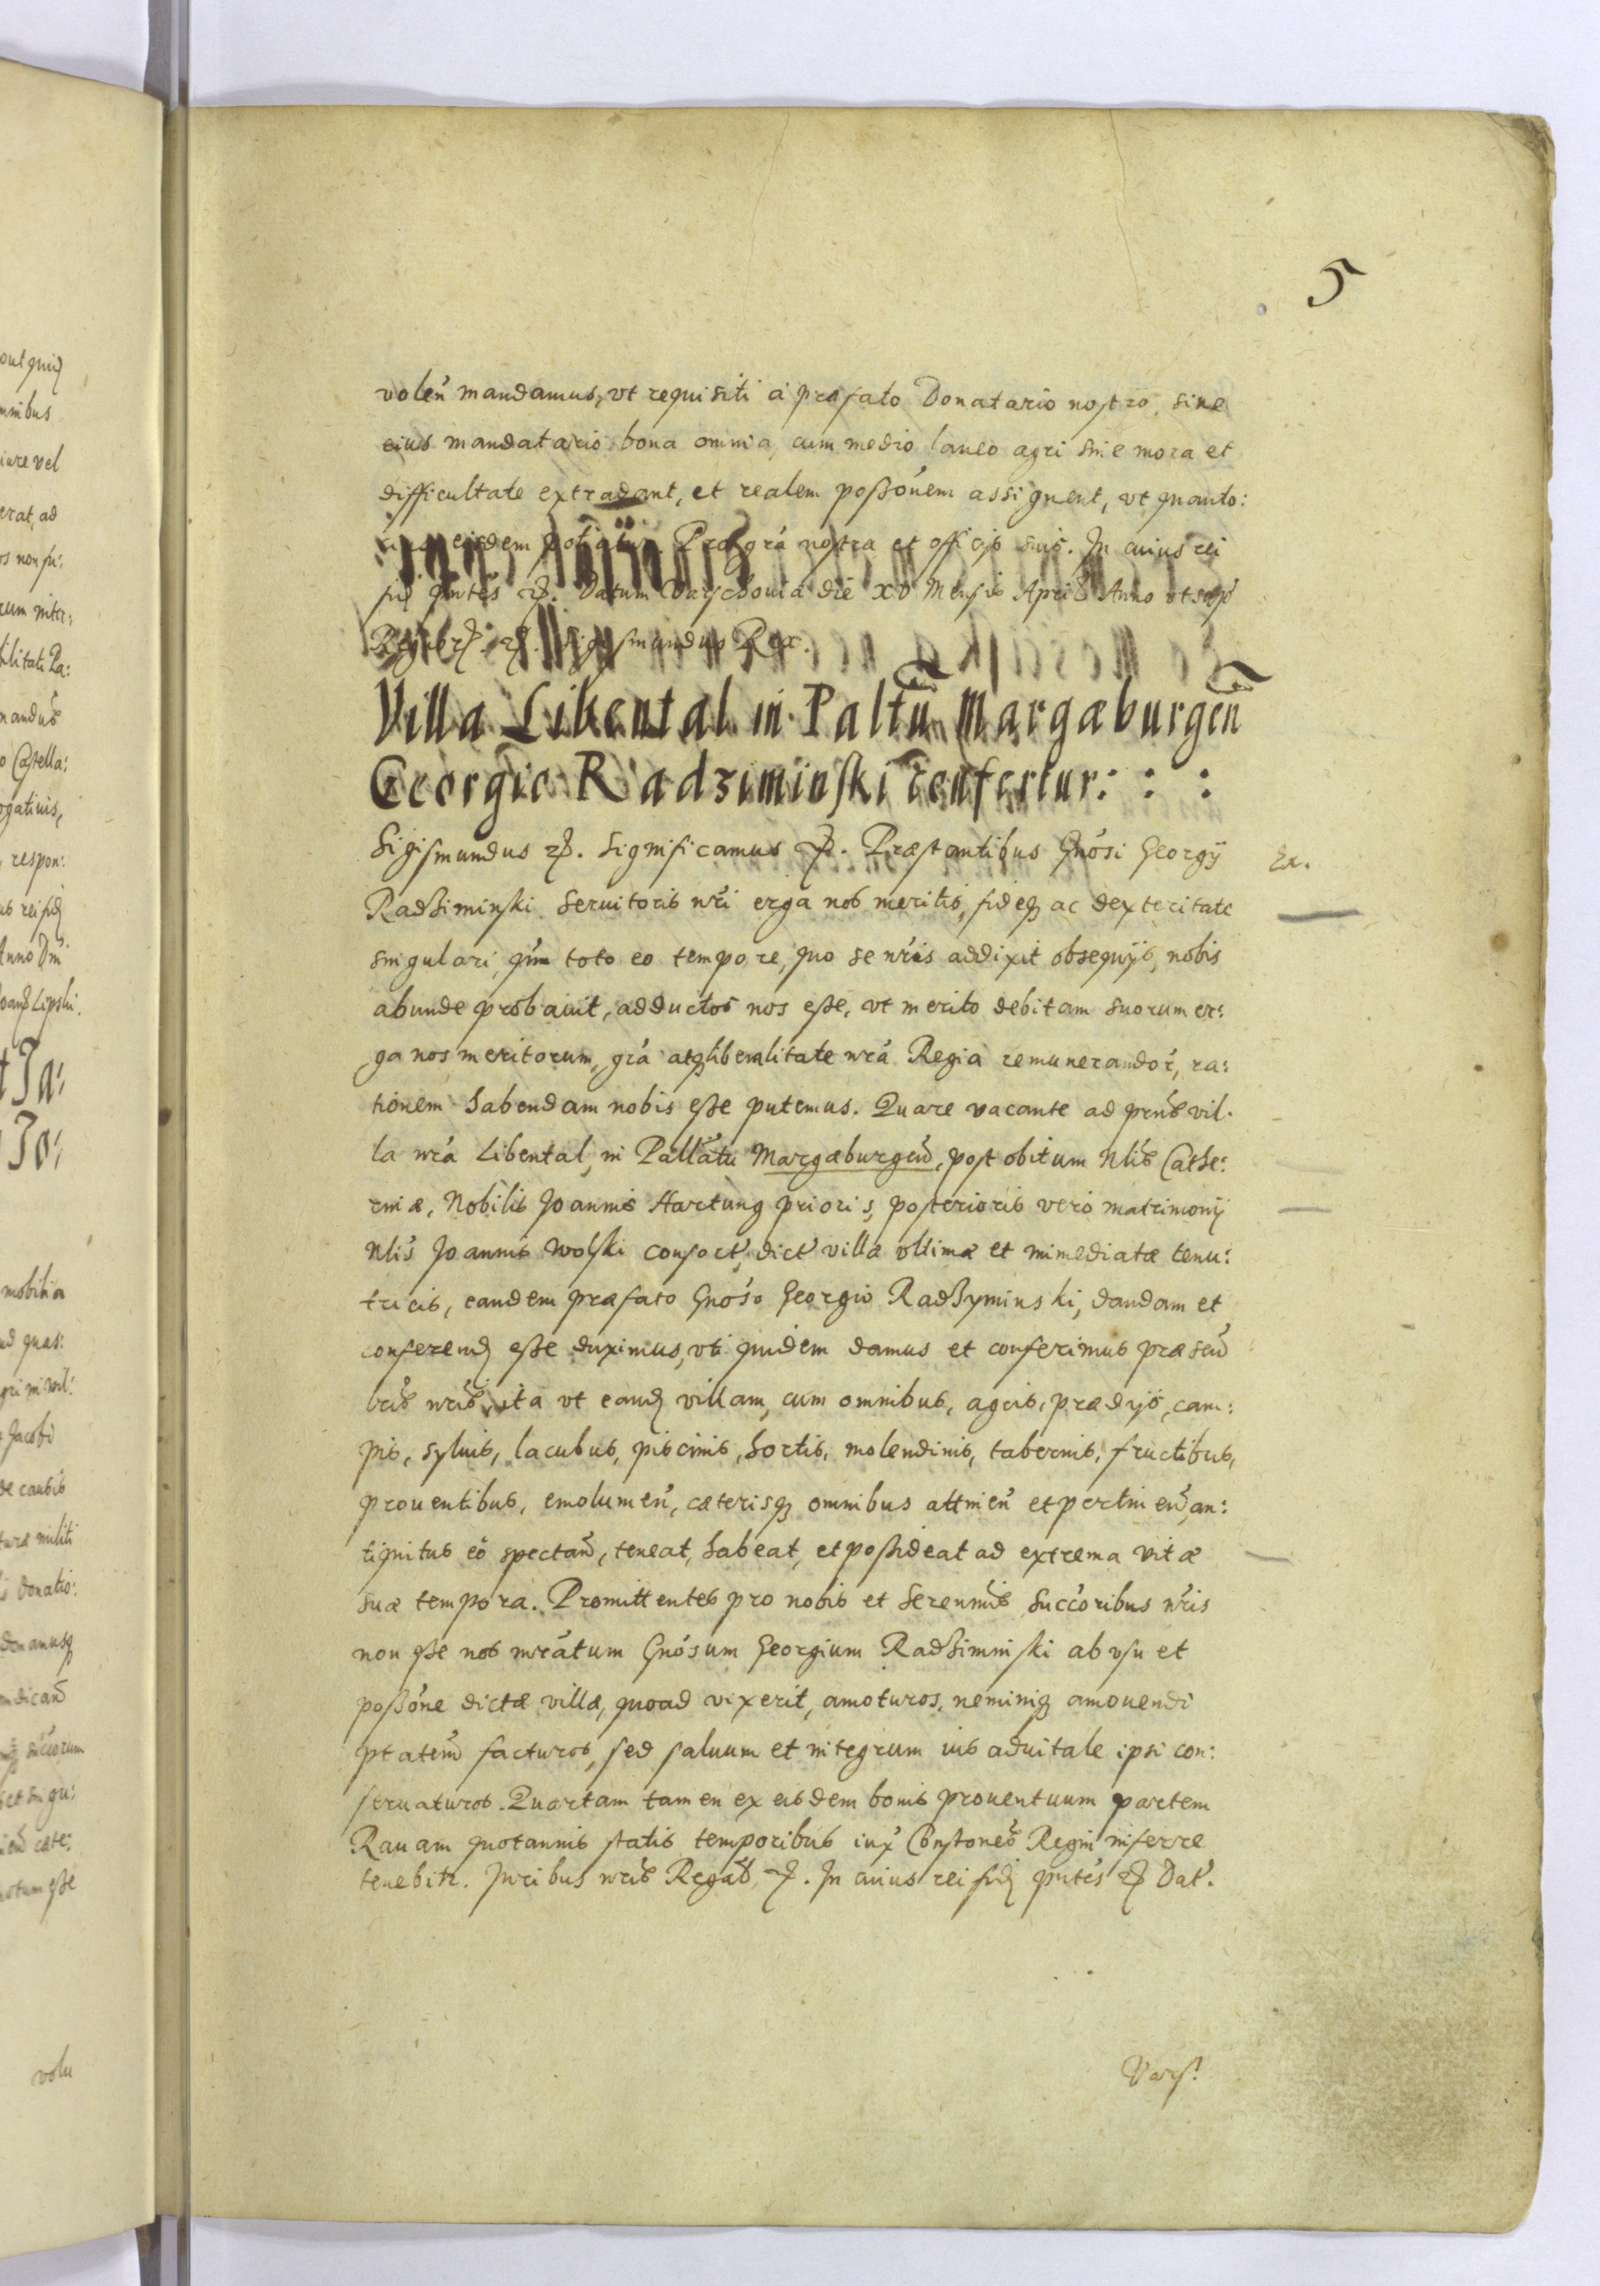 5
volen̄ mandamus, vt requisiti à præfato Donatario nostro, siue
eius mandatario bona omnia, cum medio laneo agri sine mora et
difficultate extradant, et realem poßonem assignent, vt quanto:
eisdem potiatur. Pro grá nostra et officijs suis. In cuius rei
fid̨ pntes ꝛc. Datum Varschouiæ die XV Mensis April Anno vt sup̄
Sigismundus Rex.
Villa Libental in Paltū Margæburgen̄
Georgio Radziminski confertur: : :
Sigismundus ꝛc. Significamus ꝛc. Præstantibus Gnósi Georgÿ
Ex.
Radziminski Seruitoris nŕi erga nos meritis, fideq̨ ac dexteritate
singulari, qúm toto eo tempore, quo se nŕis addixit obsequÿs, nobis
abunde probauit, adductos nos eße, vt merito debitam suorum er:
ga nos meritorum, grá atq̨ liberalitate nŕa Regia remunerandor̃, ra:
tionem habendam nobis eße putemus. Quare vacante ad prns̃ vil-
la nŕa Libental, in Pallátu Margæburgen̄, post obitum Nlis̃ Cathe:
rinæ, Nobilis Joannis Hartung prioris, posterioris vero matrimonÿ
Nlis̃ Joannis Wolski consort̃, dict̃ villæ vltimæ et immediatæ tenu:
tricis, eandem præfato Gnóso Georgio Radzyminski, dandam et
conferend̨ eße duximus, vti quidem damus et conferimus præsen̄
lr̃is nr̃is, ita vt eand̨ villam, cum omnibus, agris, prædÿs, cam:
pis, syluis, lacubus, piscinis, hortis, molendinis, tabernis, fructibus,
prouentibus, emolumen̄, cæterisq̨ omnibus attinen̄ et pertinen̄, an:
tiquitus eó spectan̄, teneat, habeat, et poßideat ad extrema vitæ
suæ tempora. Promittentes pro nobis et Serenmis̃ Succóribus nŕis
non eße nos mrátum Gnósum Georgium Radziminski ab vsu et
poßóne dictæ villæ, quoad vixerit, amoturos, neminiq̨ amouendi
ptatem̄ facturos, sed saluum et integrum ius aduitale ipsi con:
seruaturos. Quartam tamen ex eisdem bonis prouentuum partem
Rauam quotannis statis temporibus iux̃ Constones̃ Regni inferre
tenebitr. Juribus nr̃is Regalb̃ ꝛc. In cuius rei fid̨ pntés ꝛc Dat̃.
Vars: